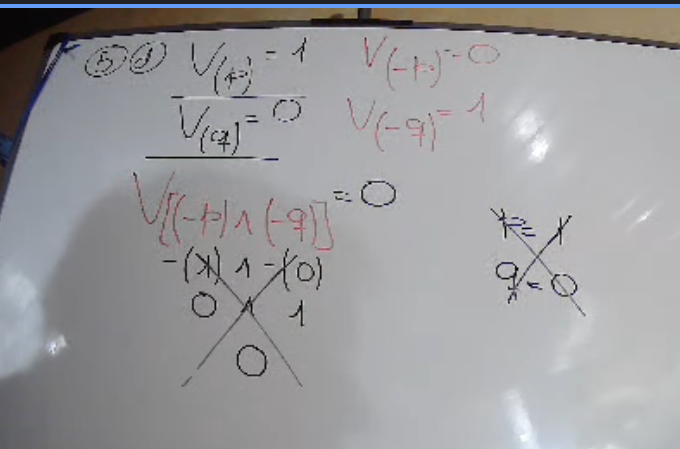 (5) (d) V(p) = 1 V(-p) = 0
V(q) = 0 V(-q) = 1
V[(-p) ∧ (-q)] = 0
-(1) ∧ -(0)
0 ∧ 1
0
p = 1
q = 0